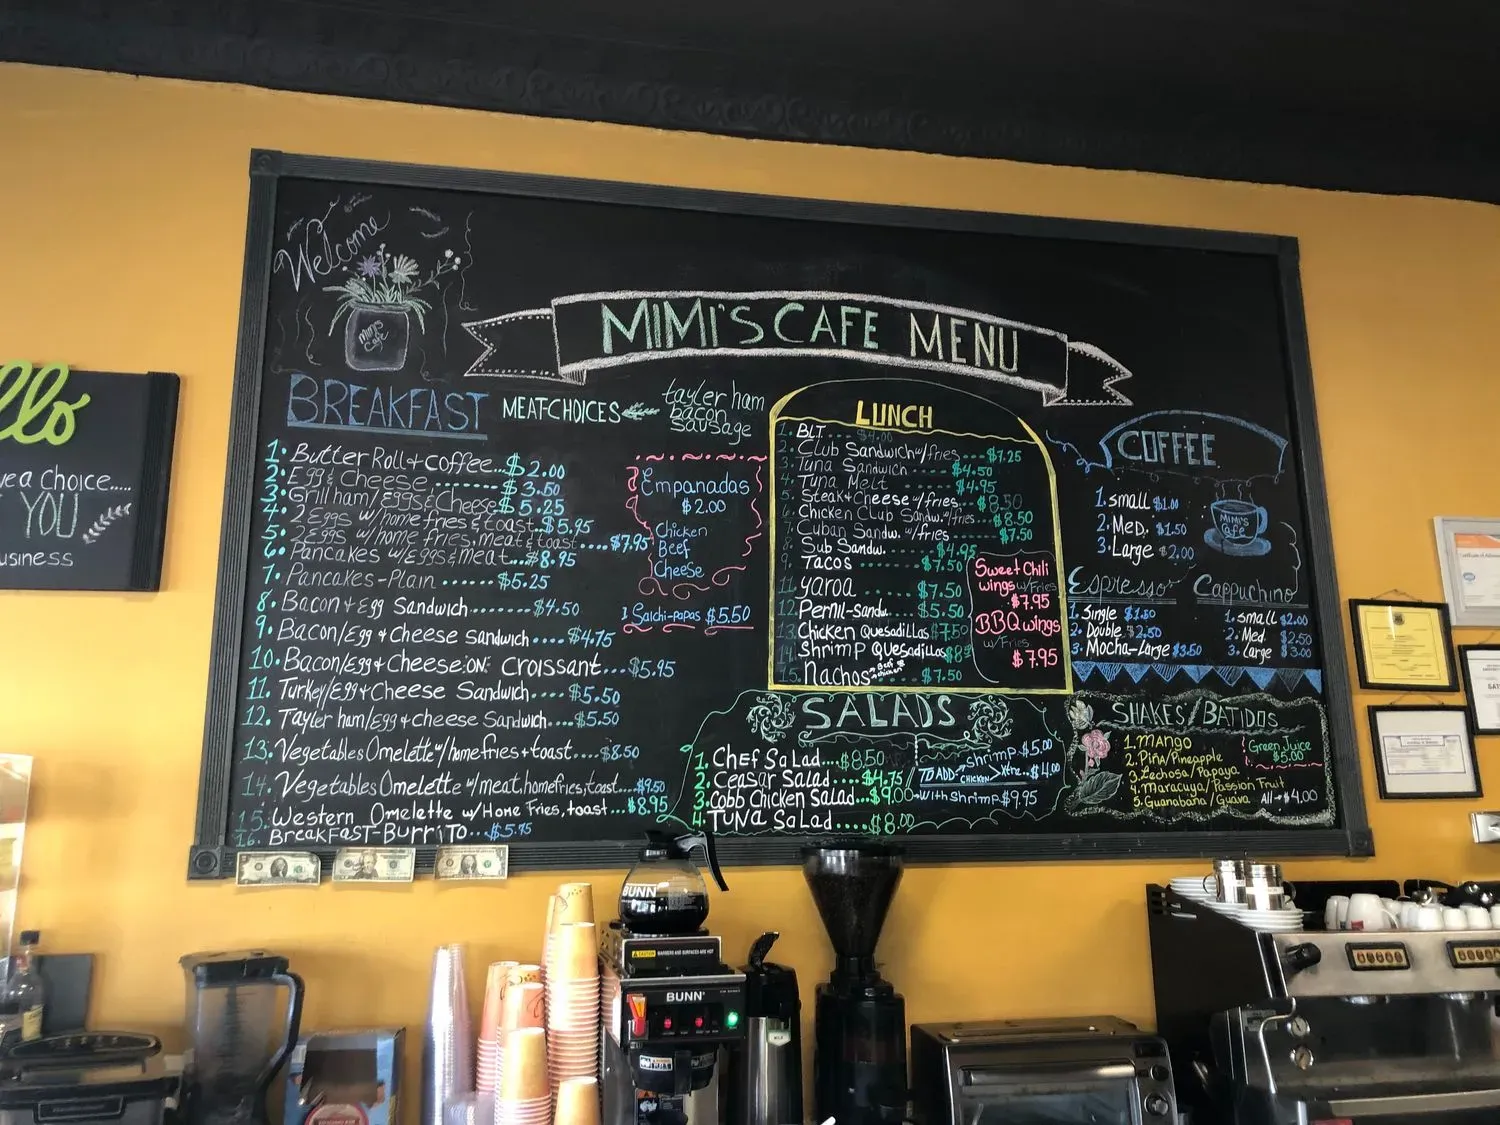 Welcome
Mimi's
Cafe
MIMI'S CAFE MENU
llo
a choice.....
YOU
usiness
BREAKFAST
MEAT-CHOICES
tayler ham
bacon
sausage
1. Butter Roll + coffee... $2.00
2. Egg & Cheese ........ $3.50
3. Grill ham/Eggs & Cheese $5.25
4. 2 Eggs w/ home fries & toast... $5.95
5. 2 Eggs w/ home fries, meat & toast .... $7.95
6. Pancakes w/Eggs & meat... $8.95
7. Pancakes-Plain ...... $5.25
8. Bacon & Egg Sandwich........ $4.50
9. Bacon/Egg & Cheese Sandwich.... $4.75
10. Bacon/Egg & Cheese ON Croissant... $5.95
11. Turkey/Egg & Cheese Sandwich.... $5.50
12. Tayler ham/Egg & Cheese Sandwich.... $5.50
13. Vegetables Omelette w/home fries + toast.... $8.50
14. Vegetables Omelette w/meat, homefries, toast.... $9.50
15. Western Omelette w/Home Fries, toast... $8.95
16. BreakFast-Burrito... $5.75
Empanadas
$2.00
Chicken
Beef
Cheese
1 Salchi-papas $5.50
LUNCH
1. BLT.... $4.00
2. Club Sandwich w/fries... $7.25
3. Tuna Sandwich ..... $4.50
4. Tuna Melt ..... $4.95
5. Steak & Cheese w/fries.... $8.50
6. Chicken Club Sandw. w/fries... $8.50
7. Cuban Sandw. w/fries .... $7.50
8. Sub Sandw. ..... $4.95
9. Tacos ..... $7.50
11. Yaroa ..... $7.50
12. Pernil-Sandw. .... $5.50
13. Chicken Quesadillas $7.50
14. Shrimp Quesadillas
15. Nachos Beef & chicken .... $7.50
Sweet Chili
wings w/Fries
$7.95
BBQ wings
w/Fries
$7.95
SALADS
1. Chef Salad.... $8.50
2. Ceasar Salad.... $4.75
3. Cobb Chicken Salad... $9.00
4. Tuna Salad .... $8.00
TO ADD
Shrimp $5.00
CHICKEN Xtra.. $4.00
with Shrimp $9.95
COFFEE
1. small $1.00
2. Med. $1.50
3. Large $2.00
MIMI'S
Cafe
Espresso
1. Single $1.50
2. Double $2.50
3. Mocha-Large $3.50
Cappuchino
1. small $2.00
2. Med $2.50
3. Large $3.00
SHAKES/BATIDOS
1. Mango
2. Piña/Pineapple
3. Lechosa/Papaya
4. Maracuya/Passion Fruit
5. Guanabana/Guava All $4.00
Green Juice
$5.00
BUNN
BUNN